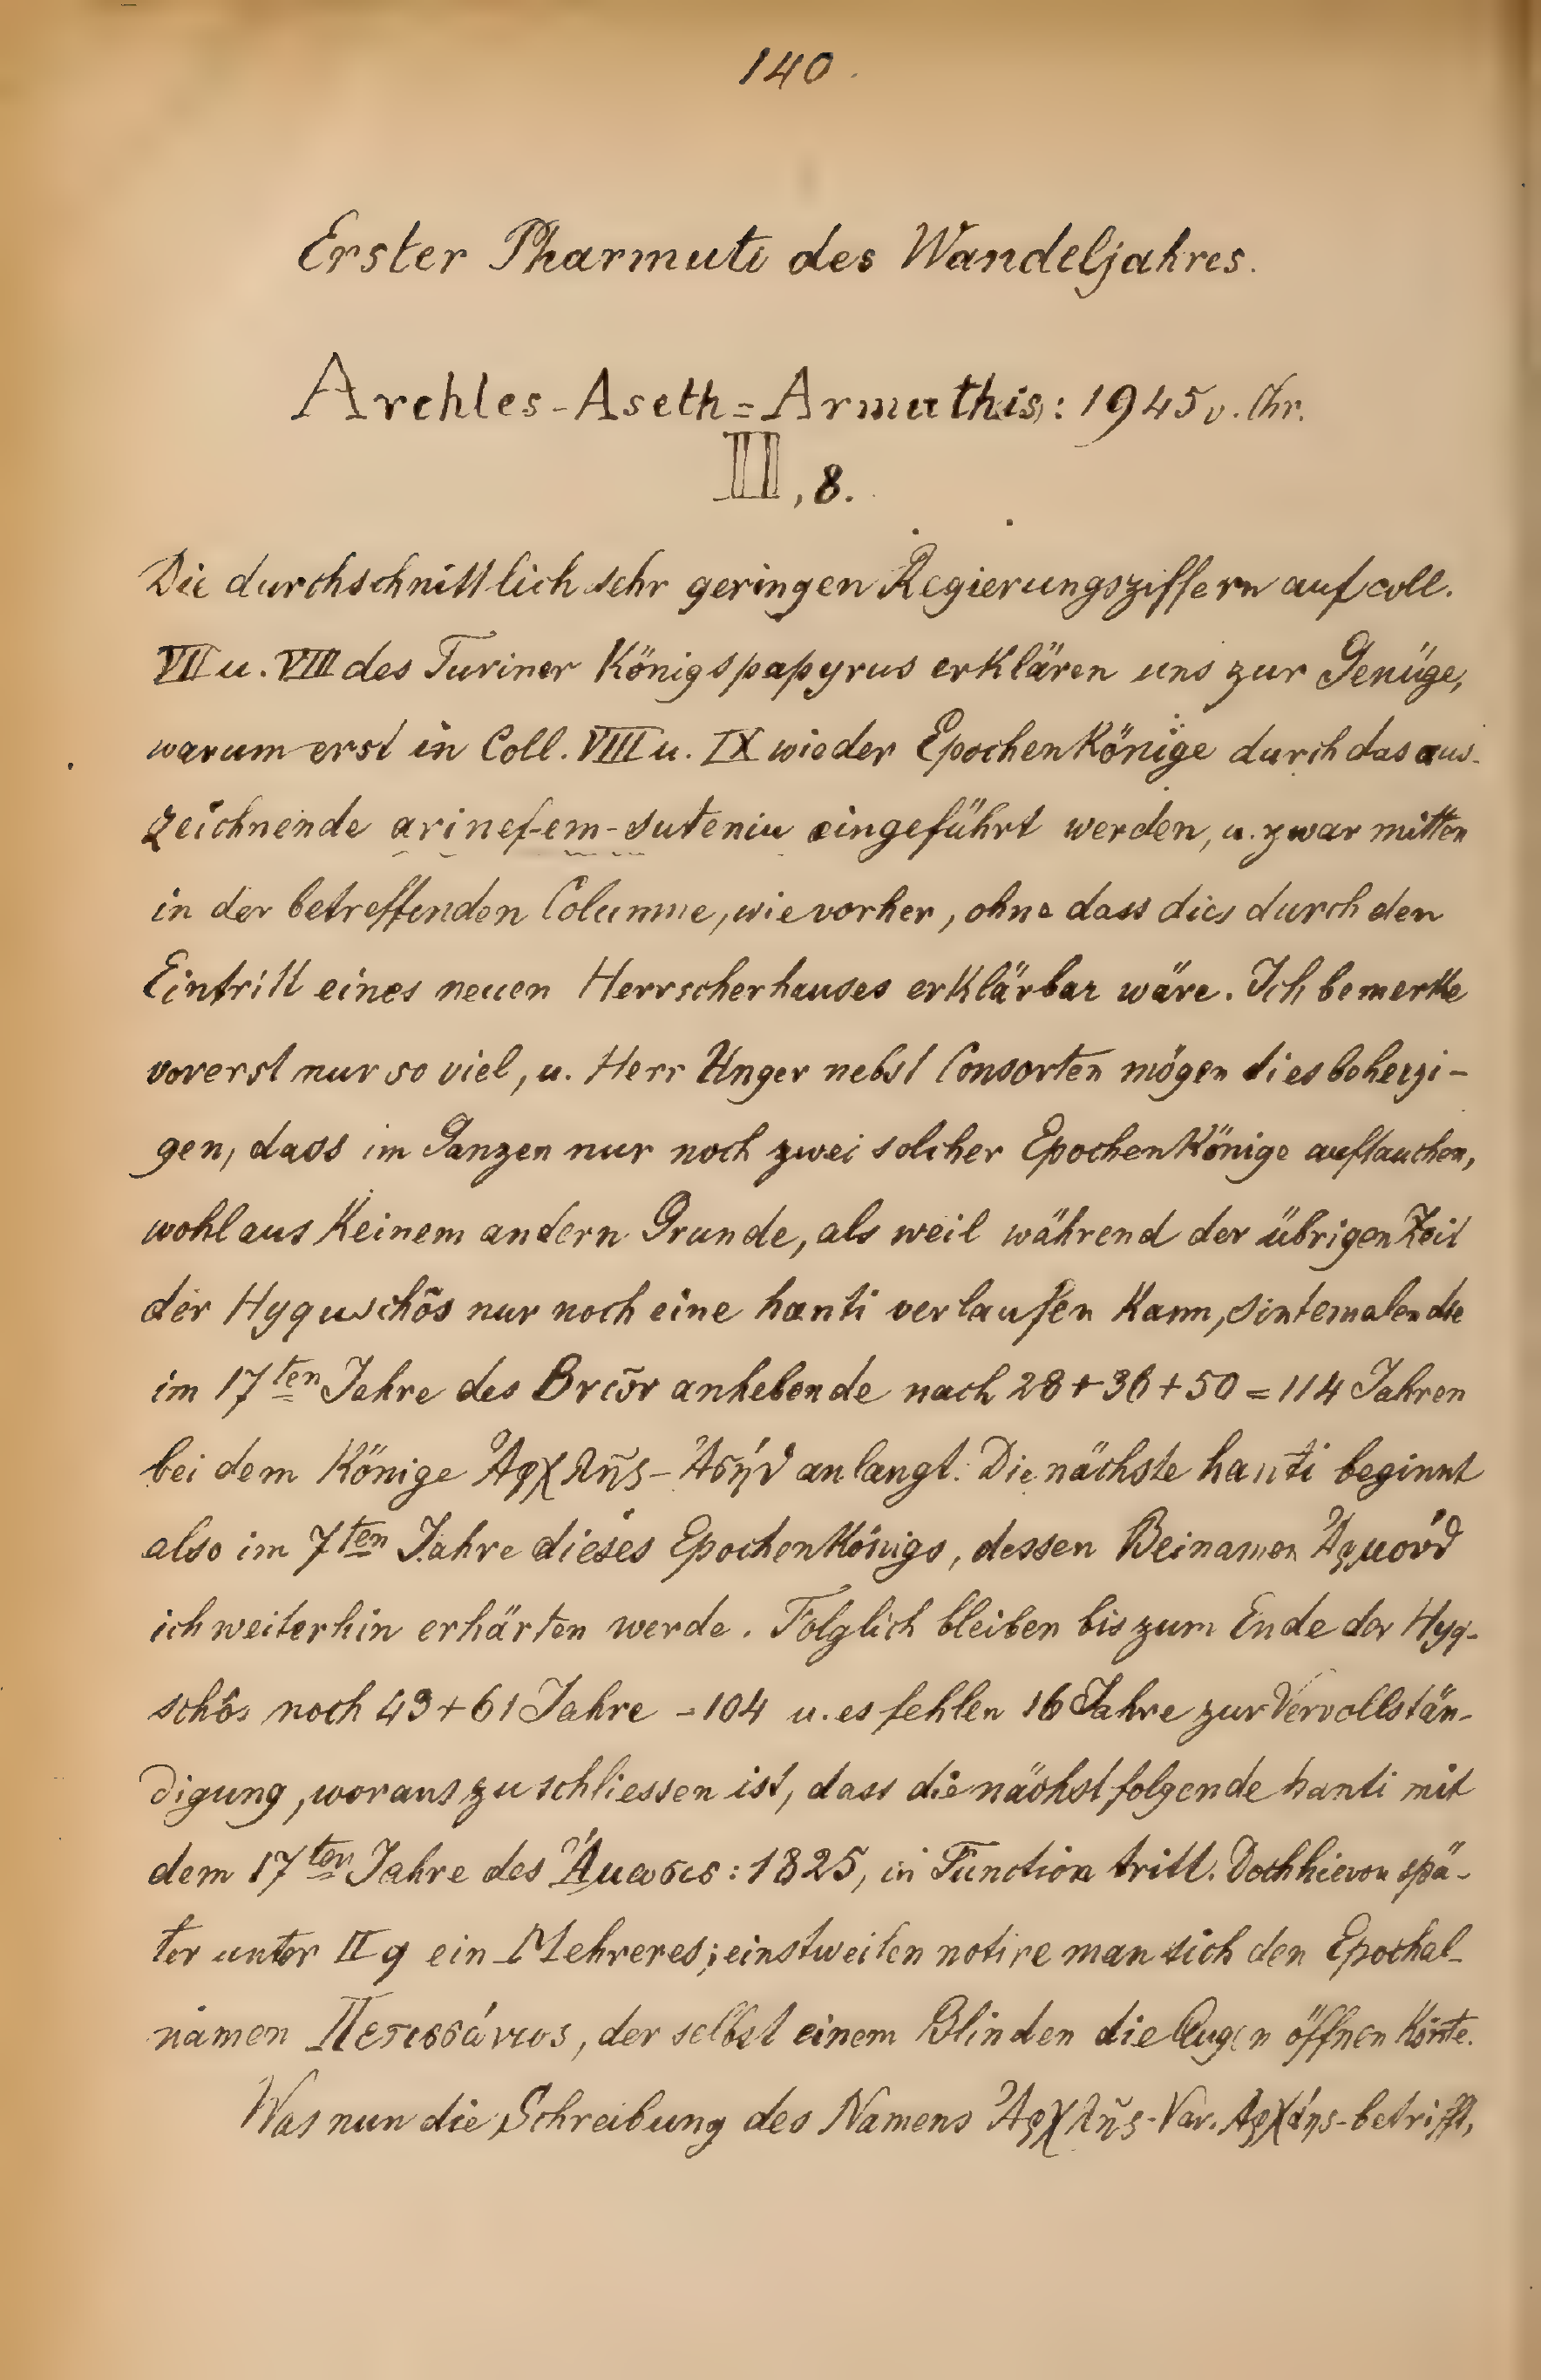 140.
Erster Pharmuti des Wandeljahres.
Archles-Aseth=Armuthis: 1945 v. Chr.
II, 8.
Die durchschnittlich sehr geringen Regierungsziffern auf coll.
VII u. VIII des Turiner Königspapyrus erklären uns zur Genüge,
warum erst in Coll. VIII u. IX wieder Epochenkönige durch das aus-
zeichnende arinef-em-suteniu eingeführt werden, u. zwar mitten
in der betreffenden Columne, wie vorher, ohne dass dies durch den
Eintritt eines neuen Herrscherhauses erklärbar wäre. Ich bemerke
vorerst nur so viel, u. Herr Unger nebst Consorten mögen dies beherzi-
gen, dass im Ganzen nur noch zwei solcher Epochenkönige auftauchen,
wohl aus keinem andern Grunde, als weil während der übrigen Zeit
der Hyquschôs nur noch eine hanti verlaufen kann, sintemalen die
im 17ten Jahre des anhebende nach 28+36+50=114 Jahren
bei dem Könige Ἀρχλῆς-Ἀσήθ anlangt. Die nächste hanti beginnt
also im 7ten Jahre dieses Epochenkönigs, dessen Beinamen Ἀρμούθ
ich weiterhin erhärten werde. Folglich bleiben bis zum Ende der Hyq-
schôs noch 43+61 Jahre =104 u. es fehlen 16 Jahre zur Vervollstän-
digung, woraus zu schliessen ist, dass die nächstfolgende hanti mit
dem 17ten Jahre des Ἄμωσις: 1825, in Function tritt. Doch hievon spä-
ter unter II 9 ein Mehreres; einstweilen notire man sich den Epochal-
namen Πετισσάνιος, der selbst einem Blinden die Augen öffnen könte.
Was nun die Schreibung des Namens Ἀρχλῆς-Var. Ἀρχάης-betrifft,